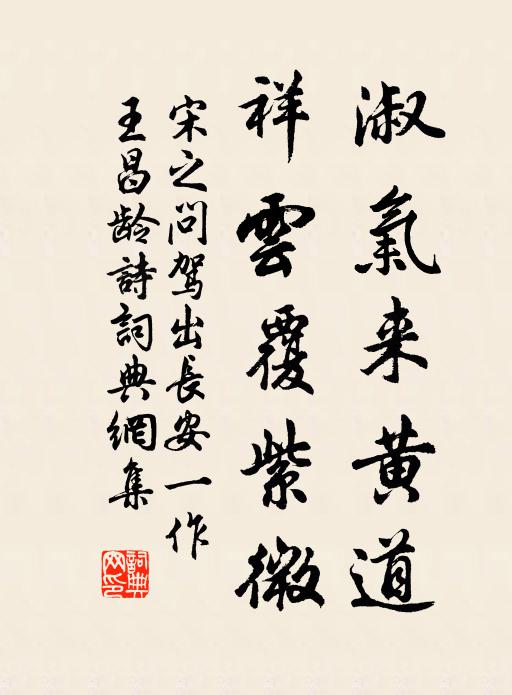 淑氣来黄道
祥雲覆紫微
宋之问駕出長安一作
王昌龄詩詞典網集
詞典网印